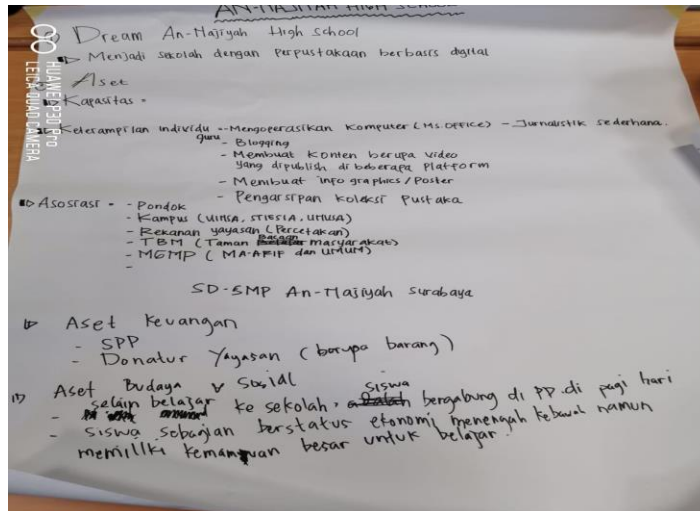 AN-NAJIYAH HIGH SCHOOL
Dream An-Najiyah High school
Menjadi sekolah dengan perpustakaan berbasis digital
Aset
Kapasitas =
Keterampilan individu guru - Mengoperasikan Komputer (MS. OFFICE) - Jurnalistik sederhana.
- Blogging
- Membuat konten berupa video
yang dipublish di beberapa platform
- Membuat infographics / Poster
- Pengarsipan koleksi pustaka
Asosiasi = - Pondok
- Kampus (UINSA, STIESIA, UNUSA)
- Rekanan yayasan (Percetakan)
- TBM (Taman Bacaan masyarakat)
- MGMP (MA-ARIF dan UMUM)
-
SD-SMP An-Najiyah Surabaya
Aset Keuangan
- SPP
- Donatur Yayasan (berupa barang)
Aset Budaya & Sosial
- selain belajar ke sekolah, siswa bergabung di PP. di pagi hari
- siswa sebagian berstatus ekonomi menengah kebawah namun
memiliki kemampuan besar untuk belajar.
HUAWEI P30 Pro
LEICA QUAD CAMERA